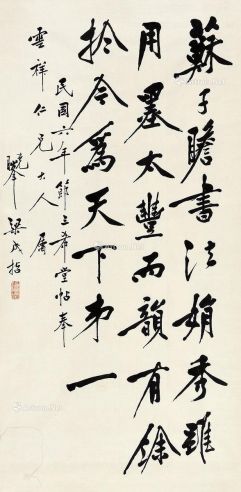 蘇子瞻書法娟秀雖
用墨太豐而韻有餘
於今為天下第一
民國六年節三希堂帖奉
雲祥仁兄大人屬
曉擎梁成哲